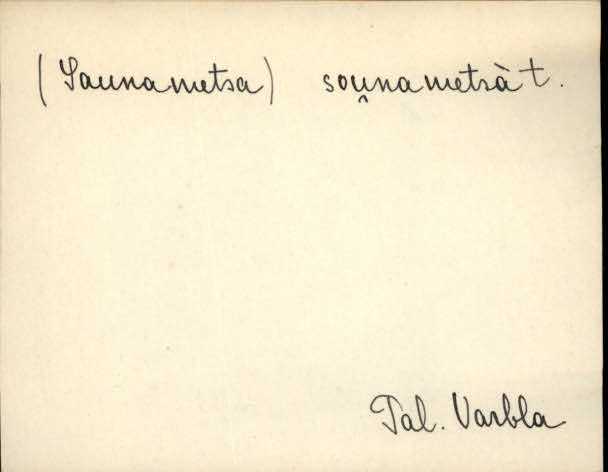 (Saunametsa) sou̯nametsà t.
Tal. Varbla